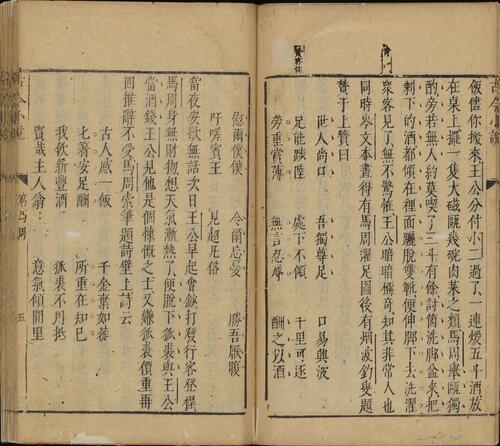 剩儘你搬來王公分付小二過了一連煖五斗酒放
在桌上擺一隻大磁甌幾碗肉菜之類馬周舉甌獨
酌旁若無人約莫喫了三斗有餘討箇洗脚盆來把
剩下的酒都傾在裡面躧脫雙靴便伸脚下去洗濯
衆客見了無不驚怪王公暗暗稱奇知其非常人也
同時岑文本畫得有馬周濯足圖後有烟波釣叟題
贊于上贊曰
世人尚口 吾獨尊足 口易興波
足能踄陸 處下不傾 千里可逐
勞重賞薄 無言忍辱 酬之以酒
慰爾僕僕 令爾忘憂 勝吾厭腹
吁嗟賓王 見超凡俗
當夜安歇無話次日王公早起會鈔打發行客登程
馬周身無財物想天氣漸熱了便脫下狐裘與王公
當酒錢王公見他是個慷慨之士又嫌狐裘價重再
四推辭不受馬周索筆題詩壁上詩云
古人感一飯 千金棄如屣
匕箸安足酬 所重在知己
我飲新豐酒 狐裘不用抵
賢哉主人翁 意氣傾閭里
五